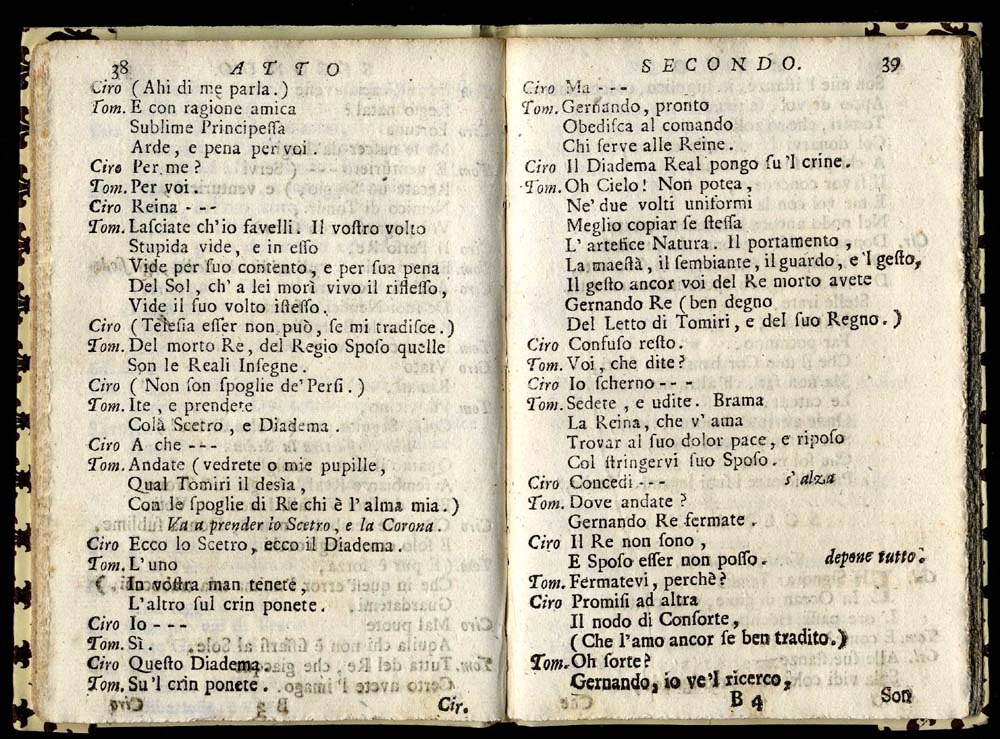 38 ATTO
Ciro (Ahi di me parla.)
Tom. E con ragione amica
Sublime Principeſſa
Arde, e pena per voi.
Ciro Per me?
Tom. Per voi.
Ciro Reina - - -
Tom. Laſciate ch'io favelli. Il voſtro volto
Stupida vide, e in eſſo
Vide per ſuo contento, e per ſua pena
Del Sol, ch' a lei morì vivo il rifleſſo,
Vide il ſuo volto iſteſſo.
Ciro (Teleſia eſſer non può, ſe mi tradiſce.)
Tom. Del morto Re, del Regio Spoſo quelle
Son le Reali Inſegne.
Ciro (Non ſon ſpoglie de' Perſi.)
Tom. Ite, e prendete
Colà Scetro, e Diadema.
Ciro A che - - -
Tom. Andate (vedrete o mie pupille,
Qual Tomiri il desìa,
Con le ſpoglie di Re chi è l'alma mia.)
Va a prender lo Scetro, e la Corona.
Ciro Ecco lo Scetro, ecco il Diadema.
Tom. L'uno
In voſtra man tenete,
L'altro ſul crin ponete.
Ciro Io - - -
Tom. Sì.
Ciro Queſto Diadema.
Tom. Su'l crin ponete.
Cir.
SECONDO. 39
Ciro Ma - - -
Tom. Gernando, pronto
Obediſca al comando
Chi ſerve alle Reine.
Ciro Il Diadema Real pongo ſu'l crine.
Tom. Oh Cielo! Non potea,
Ne' due volti uniformi
Meglio copiar ſe ſteſſa
L' artefice Natura. Il portamento,
La maeſtà, il ſembiante, il guardo, e'l geſto,
Il geſto ancor voi del Re morto avete
Gernando Re (ben degno
Del Letto di Tomiri, e del ſuo Regno.)
Ciro Confuſo reſto.
Tom. Voi, che dite?
Ciro Io ſcherno - - -
Tom. Sedete, e udite. Brama
La Reina, che v' ama
Trovar al ſuo dolor pace, e ripoſo
Col ſtringervi ſuo Spoſo.
Ciro Concedi - - - s' alza
Tom. Dove andate?
Gernando Re fermate.
Ciro Il Re non ſono,
E Spoſo eſſer non poſſo. depone tutto.
Tom. Fermatevi, perchè?
Ciro Promiſi ad altra
Il nodo di Conſorte,
(Che l'amo ancor ſe ben tradito.)
Tom. Oh ſorte?
Gernando, io ve'l ricerco,
B 4 Son